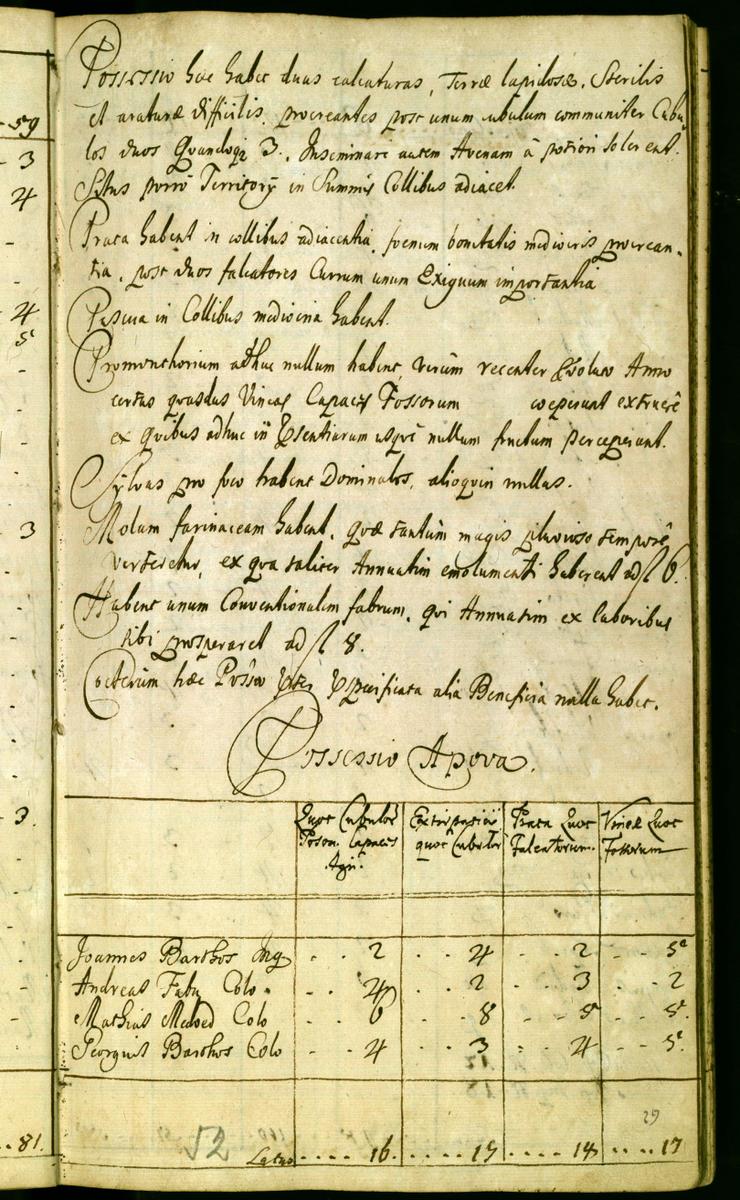 59
3
4
4
5
3
3
81.
Possessio hæc habet duas calcaturas, Terræ lapidosæ, Sterilis
et araturæ difficilis, procreantes post unum cubulum communiter Cubu
los duos Quandoqz 3. Inseminare autem Avenam à potiori solerent.
Situs porrò Territorÿ in Summis Collibus adiacet.
Prata habent in collibus adiacentia, foenum bonitatis mediocris procrean-
tia, post duos falcatores Currum unum Exiguum importantia
Pascua in Collibus mediocria habent.
Promonthorium adhuc nullum habent, verùm recenter Anno
certas quasdas Vineas Capacit Fossorum coeperunt extruere
ex quibus adhuc in usqvè nullum fructum perceperunt.
Sylvas pro foco habent Dominales, alioquin nullas.
Molam farinaceam habent, quæ tantùm magis pluvioso tempore
verteretur, ex qua taliter Annuatim emolumenti haberent ad fl 6.
Habent unum Conventionatum fabrum, qui Annuatim ex laboribus
sibi prosperaret ad fl 8.
Coeterùm hæc Possio specificata alia Beneficia nulla habet.
Possessio Apova.
Quot Cubulor Poson. Capacis Agri.
Extirpatiõ quot Cubulor
Prata Quot Falcatorum.
Vineæ Quot Fossorum
Joannes Barthos Inq . . 2 . . 4 . . 2 . . 5
Andreas Fabu Colo . . 4 . . 2 . . 3 . . 2
Mathias Medved Colo . . 6 . . 8 . . 5 . . 5
Georgius Barthos Colo . . 4 . . 3 . . 4 . . 5
29
52
Latus . . . . 16. . . . . 17 . . . . 14 . . . . 17